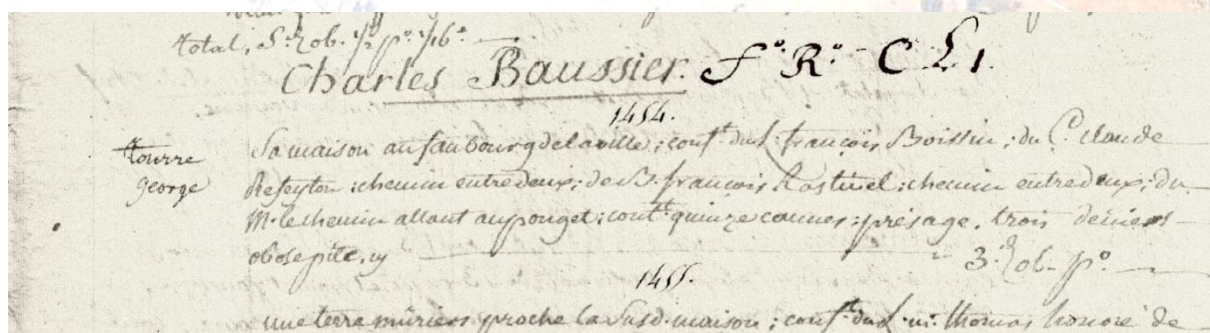 total, S.r ob. 1/2 p.o 1/16.e
Charles Baussier. f.o R.o C L1.
1454.
tourre
George
Sa maison au faubourg delaville; conf.t du L. françois Boissin; du C. claude
Reseyton; chemin entredeux; de B. françois Rastuel; chemin entredeux; du
M. le chemin allant aupouget; cont.t quinze cannes; présage. trois deniers
obole pite. cy 3.d ob. p.o
1455.
une terre muriers proche la susd. maison; conf.te du L. m.r thomas honoré de